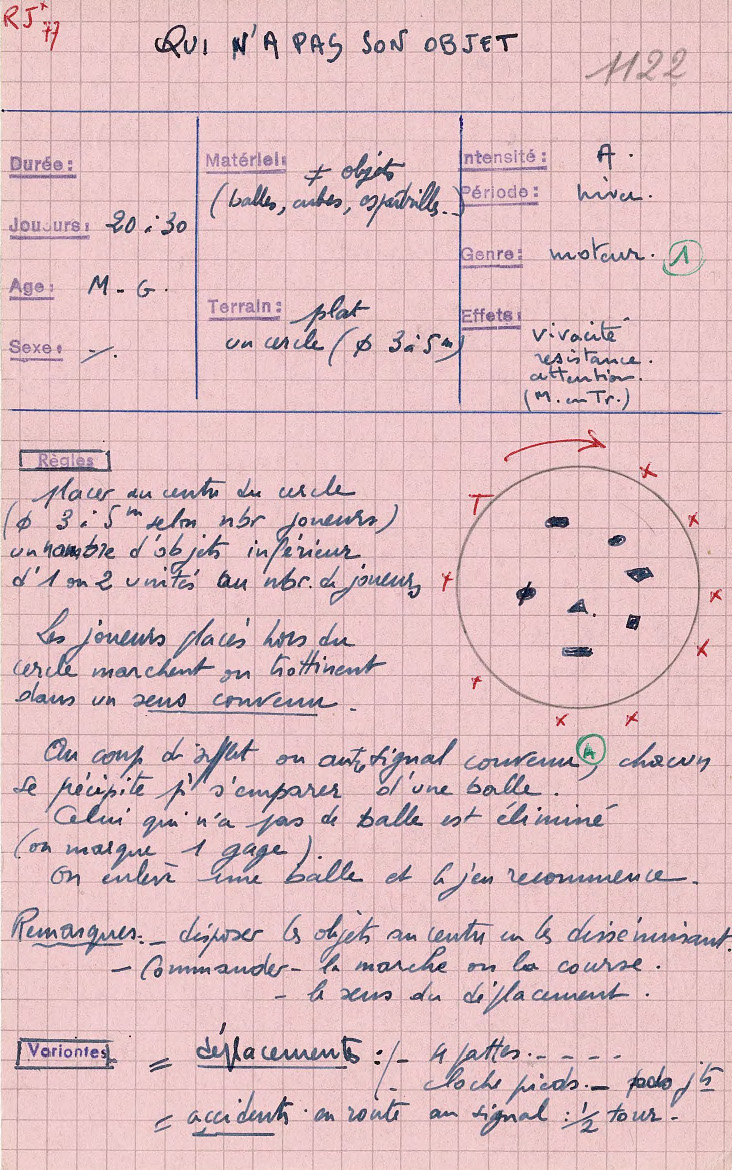 RJ+ 77
QUI N'A PAS SON OBJET
1122
Durée:
Joueurs: 20 à 30
Age: M - G.
Sexe:
Matériel: ≠ objets
(balles, cubes, espadrilles...)
Terrain: plat
un cercle (φ 3 à 5 m)
Intensité: A.
Période: hiver.
Genre: moteur. 1
Effets: vivacité
resistance.
attention.
(M. en Tr.)
Règles
placer au centre du cercle
(φ 3 à 5 m selon nbr joueurs)
un nombre d'objets inférieur
d'1 ou 2 unités au nbr. de joueurs
Les joueurs placés hors du
cercle marchent ou trottinent
dans un sens convenu.
T
A
Au coup de sifflet ou autre signal convenu, chacun
se précipite pr s'emparer d'une balle.
Celui qui n'a pas de balle est éliminé
(ou marque 1 gage)
On enlève une balle et le jeu recommence.
Remarques: - disposer les objets au centre en les disséminant.
- Commander - la marche ou la course.
- le sens du déplacement.
Variantes = déplacements: /- 4 pattes. - - - -
- cloche pieds. - pieds jts
= accidents en route au signal: 1/2 tour -